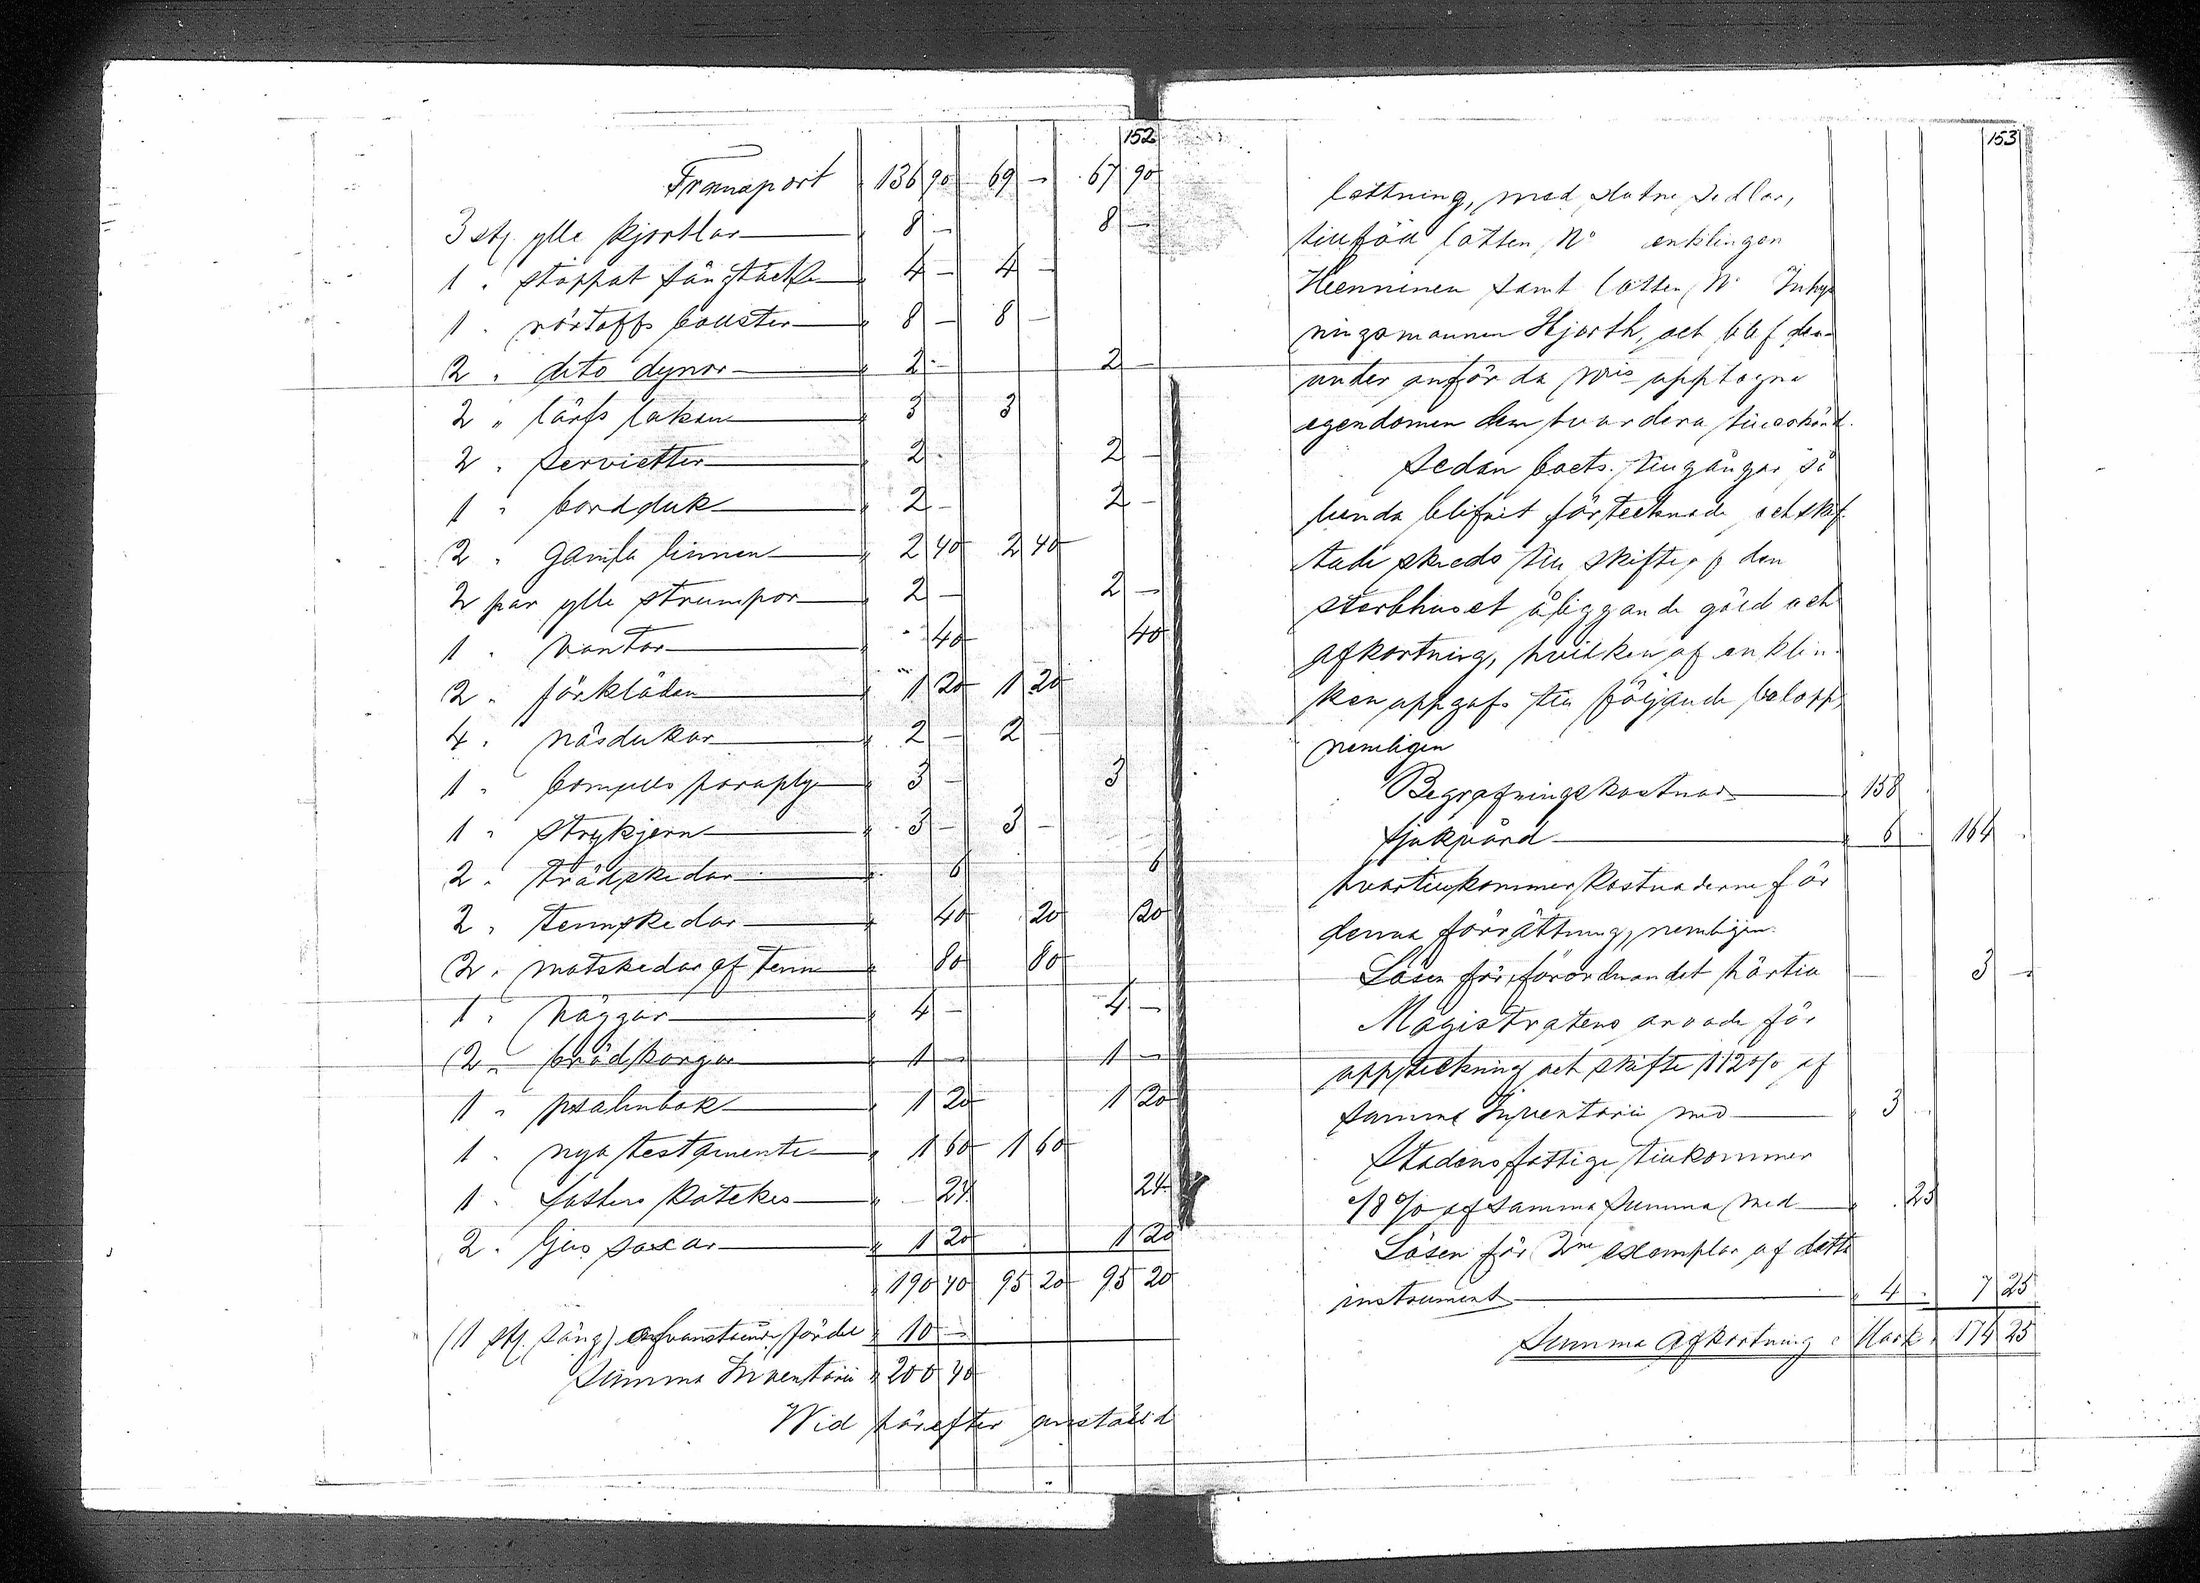 152
Transport 136 90 69 - 67 90
3 st. ylle kjortlar 8 - 8 -
1 " stoppat sängtäcke 4 - 4 -
1 " bolster 8 - 8 -
2 " dito dynor 2 - 2 -
2 " lärfs lakan 3 3
2 " servietter 2 - 2 -
1 " bordduk 2 - 2 -
2 " gamla linnen 2 40 2 40
2 par ylle strumpor 2 - 2 -
1 " vantar 40 40
2 " förkläden 1 20 1 20
4 " näsdukar 2 - 2 -
1 " bomulls paraply 3 - 3
1 " strykjern 3 - 3 -
2 " trädskedar 6 6
2 " tennskedar 40 20 20
2 " matskedar af tenn 80 80
1 " häggar 4 - 4 -
2 " brödkorgar 1 - 1 -
1 " psalmbok 1 20 1 20
1 " nya testamente 1 60 1 60
1 " katekes 24 24
2 " ljus saxar 1 20 1 20
190 40 95 20 95 20
(1 st. säng) fördel 10 -
Summa Inventarii 200 40
Wid härefter anstäld
153
lottning, med slutna sedlar,
tillföll lotten No enklingen
Henninen samt lotten No Inhys
ningsmannen Hjorth, och blef der-
under anförda No:is upptagna
egendomen dem hvardera tillerkänd.
Sedan boets tillgångar så
lunda blifvit förtecknade och skif
tade skreds till skifte af den
sterbhuset åliggande gäld och
afkortning, hvilken af enklin-
ken uppgafs till följande belopp,
nemligen
Begrafningskostnad 158
Sjukvård 6 164
hvartill kommer kostnaderne för
denna förrättning, nemligen
Lösen för förordnandet härtill 3 -
Magistratens arvode för
uppteckning och skifte 1 1/2 % af
samma Inventarii med 3
Stadens fattige tillkommer
1/8 % af samma summa med 25
Lösen för 2ne exemplar af detta
instrument 4 7 25
Summa Afkortning Mark 174 25